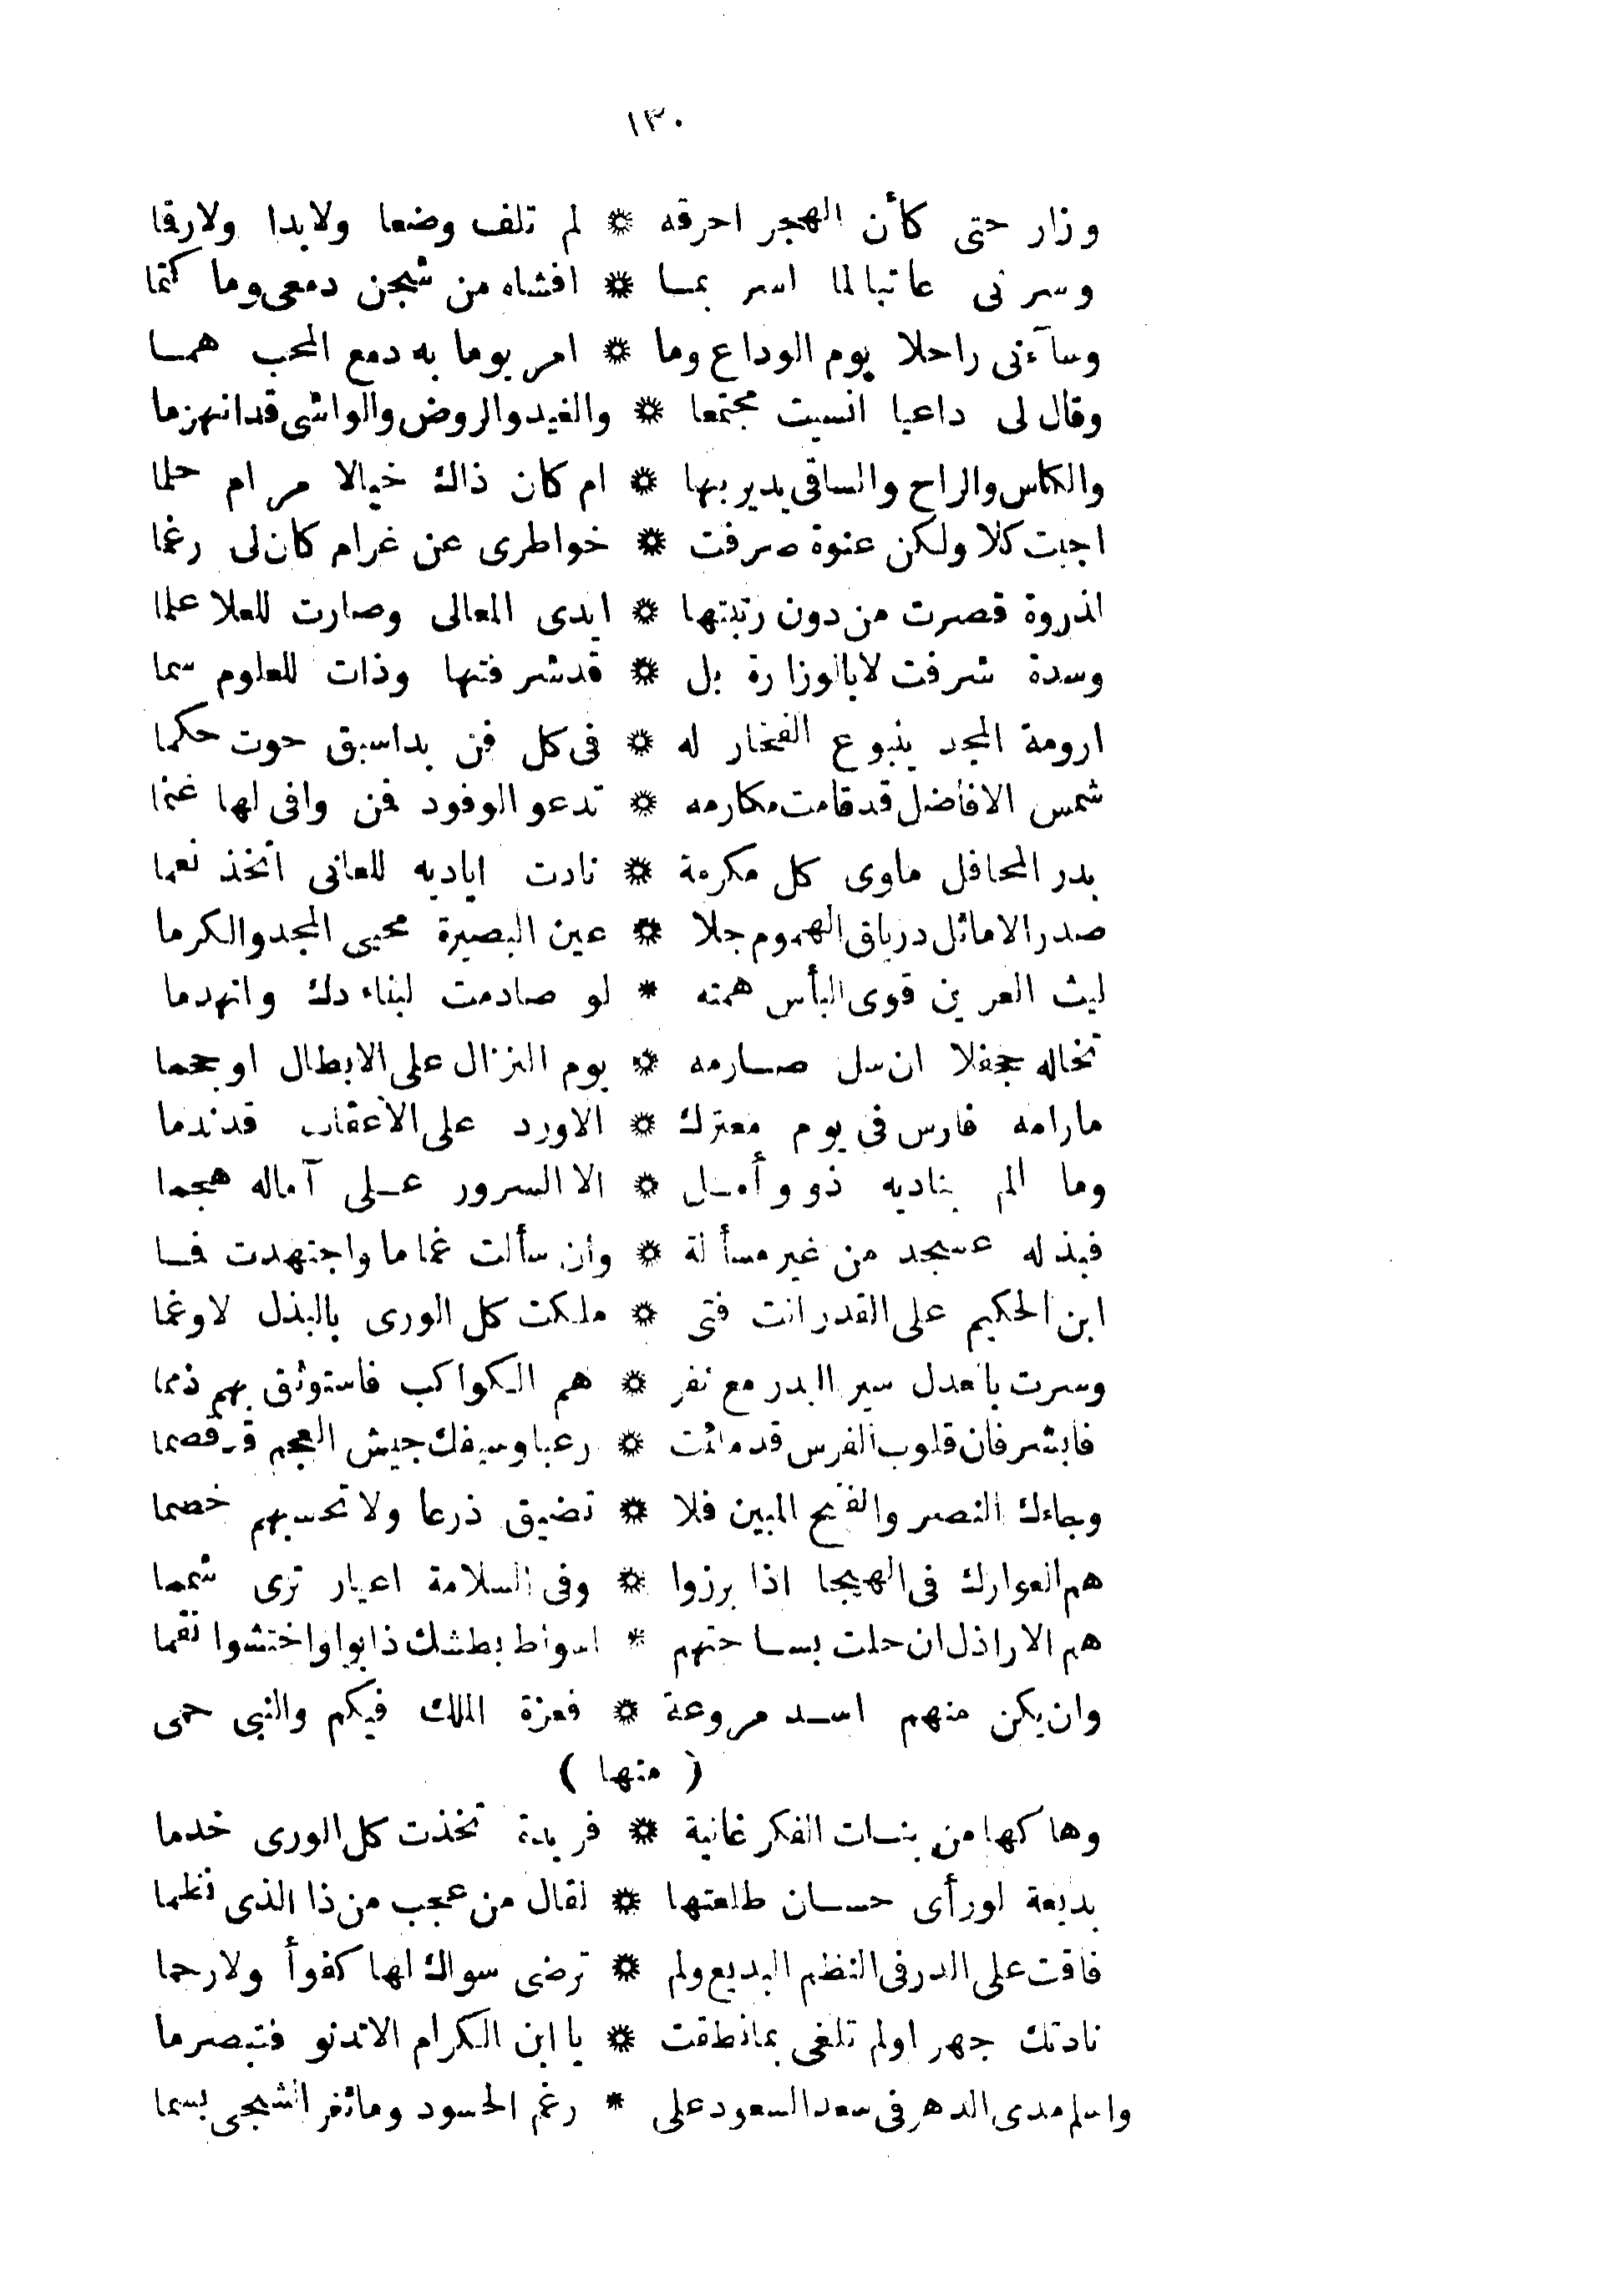 ١٣٠
وزار حتى كأن الهجر احرقه * لم تلف وضعا ولابدا ولارقا
وسرنى عاتبا لما اسر بمـا * افشاه من شجن دمعى وما كتما
وسآءنى راحلا يوم الوداع وما * امر يوما به دمع المحب همـا
وقال لى داعيا انسيت مجتمعا * والغيد والروض والواشى قد انهزما
والكاس والراح والساقى يدير بها * ام كان ذاك خيالا مر ام حلما
اجبت كلا ولكن عنوة صرفت * خواطرى عن غرام كان لى رغما
لذروة قصرت من دون رتبتها * ايدى المعالى وصارت للعلا علما
وسدة شرفت لابالوزارة بل * قدشرفتها وذات للعلوم سما
ارومة المجد ينبوع الفخار له * فى كل فن بداسبق حوت حكما
شمس الافاضل قدقامت مكارمه * تدعو الوفود فمن وافى لها غنما
بدر المحافل ماوى كل مكرمة * نادت اياديه للعانى اتخذ نعما
صدر الاماثل درياق الهموم جلا * عين البصيرة محيى المجد والكرما
ليث العرين قوى البأس همته * لو صادمت لبناء دك وانهدما
تخاله جحفلا ان سل صـارمه * يوم النزال على الابطال او جحما
مارامه فارس فى يوم معترك * الاورد على الأعقاب قدندما
وما الم بناديه ذو وأمـل * الا السرور عـلى آماله هجما
فبذله عسجد من غير مسألة * وان سألت غماما واجتهدت فمـا
ابن الحكيم على القدر انت فتى * ملكت كل الورى بالبذل لاوغما
وسرت بالعدل سير البدر مع نفر * هم الكواكب فاستوثق بهم ذمما
فابشر فان قلوب الفرس قد ملئت * رعبا وسيفك جيش العجم قد قصما
وجاءك النصر والفتح المبين فلا * تضيق ذرعا ولا تحسبهم خصما
هم العوارك فى الهيجا اذا برزوا * وفى السلامة اعيار ترى شمما
هم الاراذل ان حلت بسـاحتهم * اسواط بطشك ذابوا واختشوا نقما
وان يكن منهم اسـد مروعة * فعزة الملك فيكم والنبى حمى
( منها )
وهاكها من بنـات الفكر غانية * فريدة تخذت كل الورى خدما
بديعة لورأى حسـان طلعتها * لقال من عجب من ذا الذى نظما
فاقت على الدر فى النظم البديع ولم * ترضى سواك لها كفوأ ولارحما
نادتك جهرا ولم تلغى بمانطقت * يا ابن الكرام الاتدنو فتبصرما
واسلم مدى الدهر فى سعد السعود على * رغم الحسود وماثغر الشجى بسما